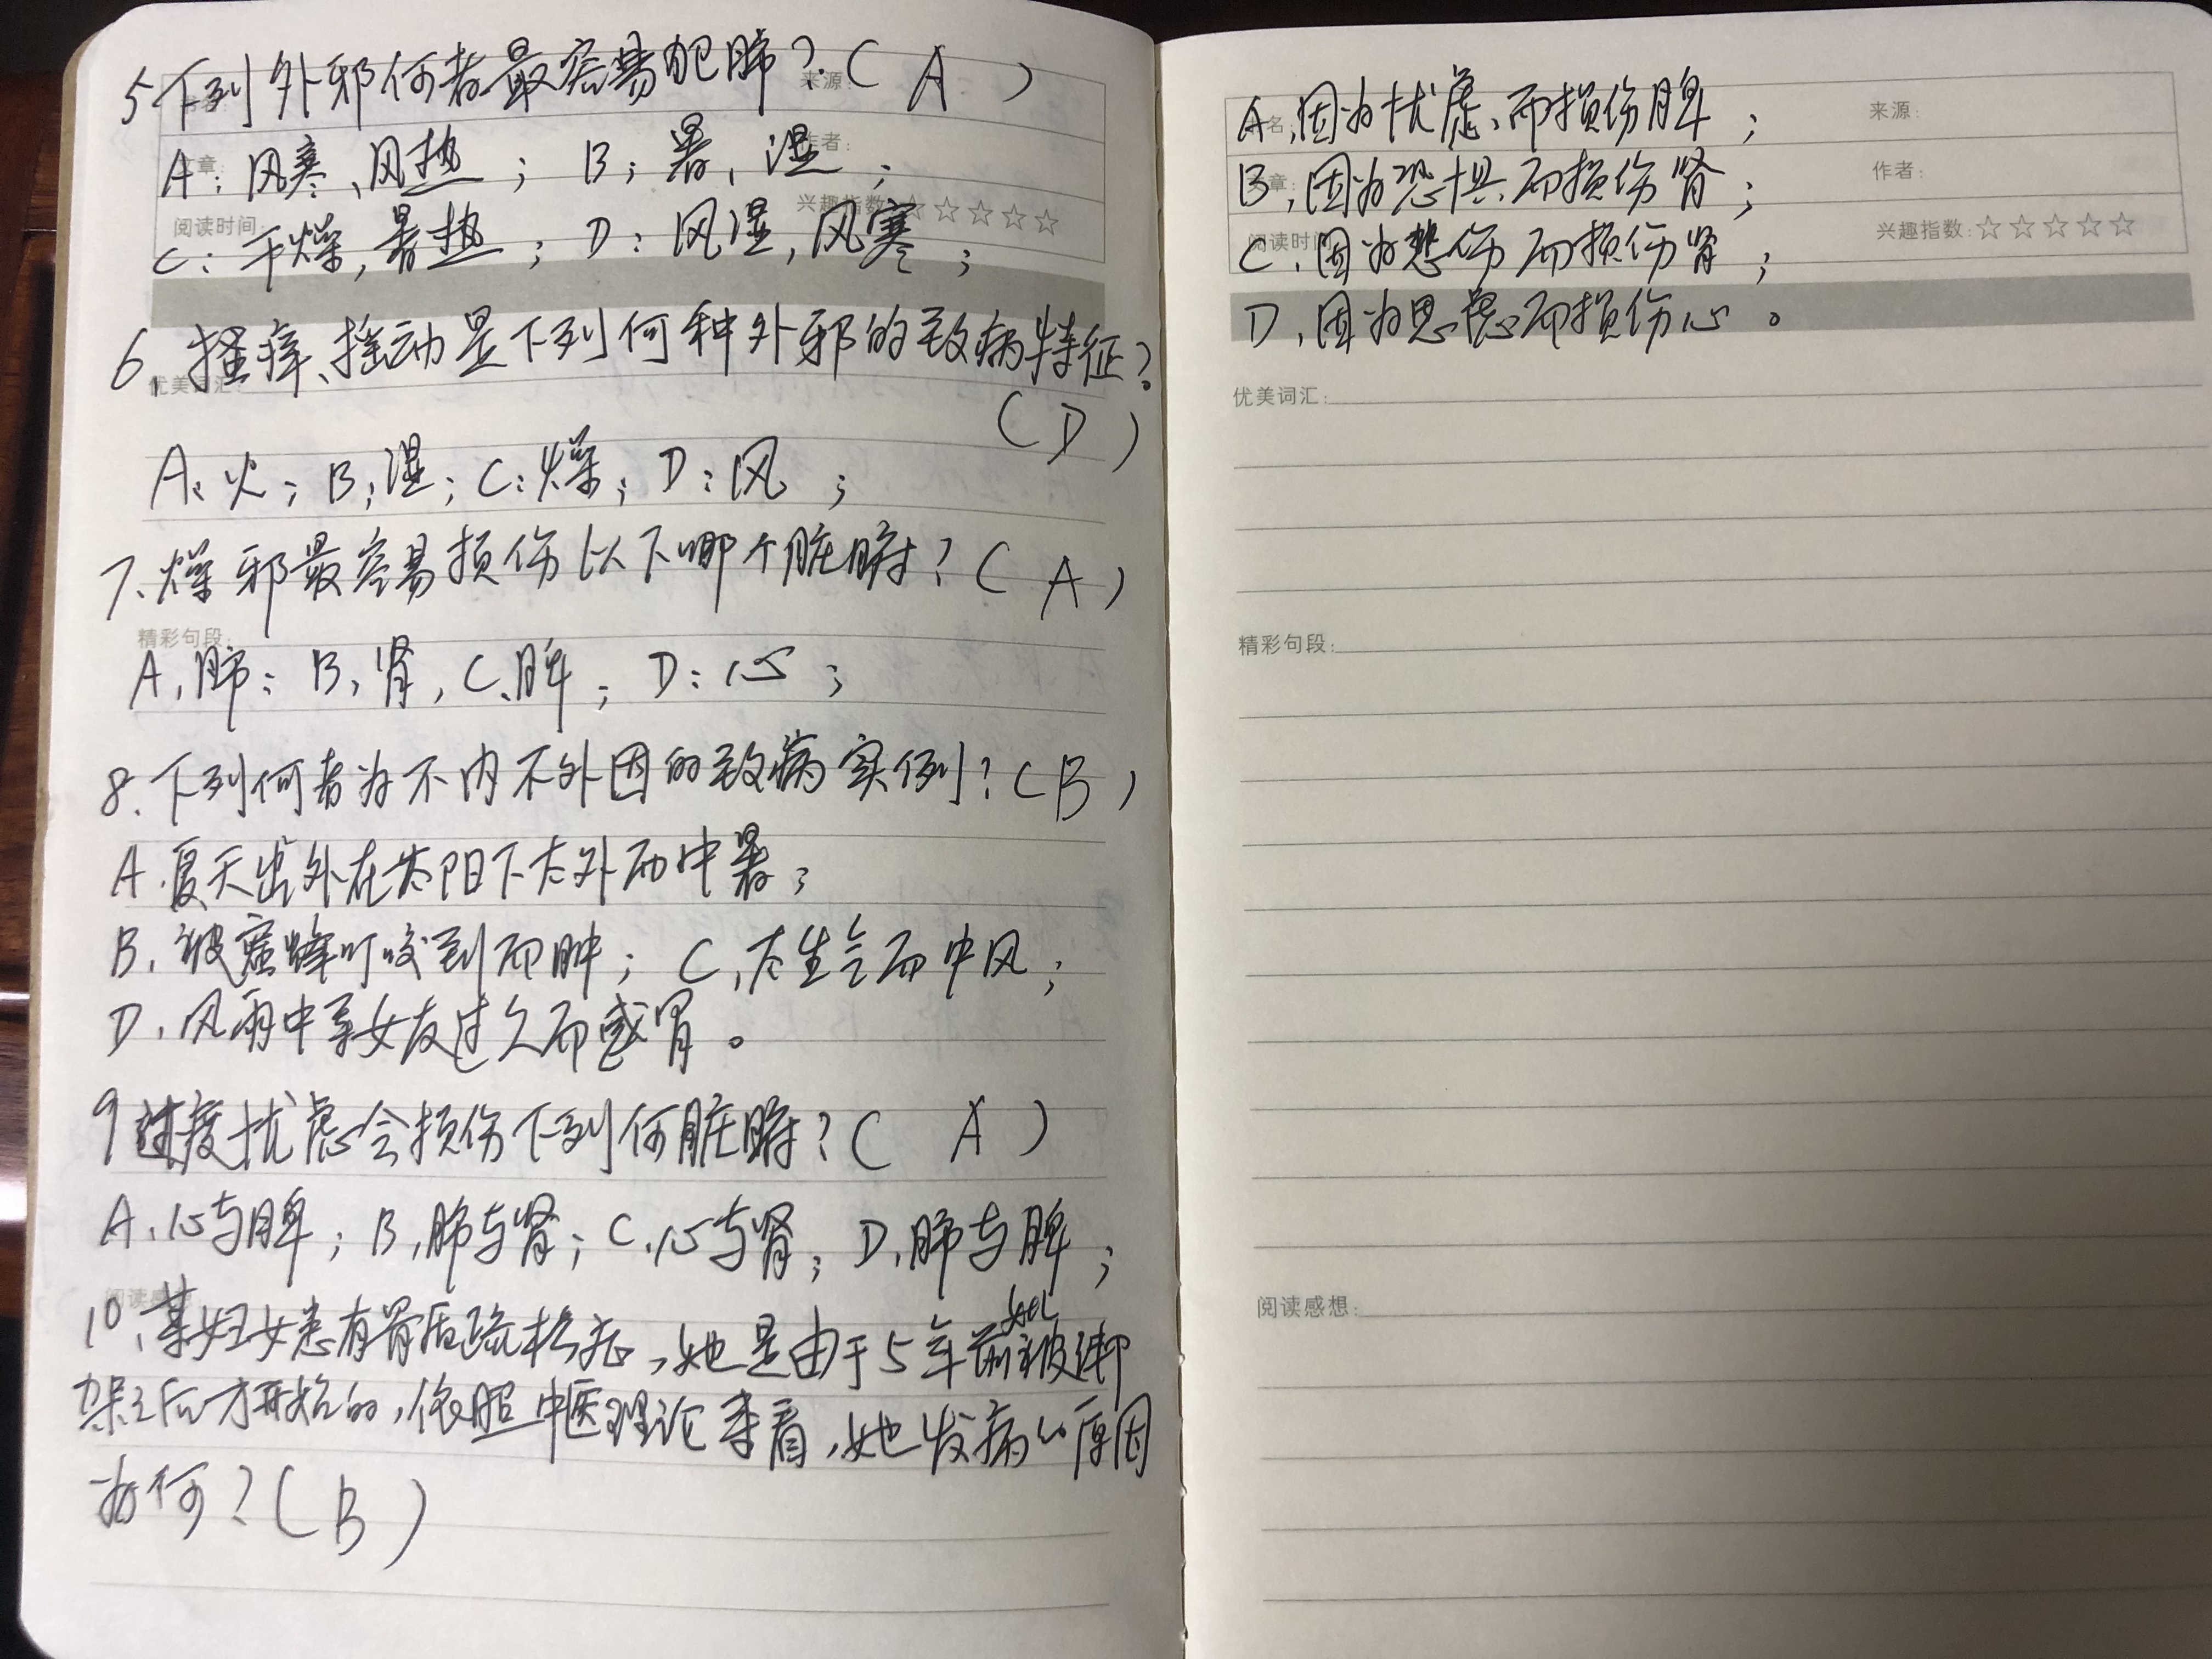 5下列外邪何者最容易犯肺?(A)
来源:
A:风寒、风热;B;暑,湿;
文章:
作者:
C:干燥,暑热;D:风湿,风寒;
阅读时间:
兴趣指数☆☆☆☆☆
6,搔痒、摇动是下列何种外邪的致病特征?
优美词汇:
(D)
A:火;B;湿;C:燥;D:风;
7、燥邪最容易损伤以下哪个脏腑?(A)
精彩句段:
A,肺;B,肾,C、脾;D:心;
8.下列何者为不内不外因的致病实例?(B)
A.夏天出外在太阳下太外而中暑;
B,被蜜蜂叮咬到而肿;C,太生气而中风;
D,风雨中等女友过久而感冒。
9过度忧虑会损伤下列何脏腑?(A)
A.心与脾;B,肺与肾;C.心与肾;D,肺与脾;
阅读感
10、某妇女患有骨质疏松症,她是由于5年前她被绑
架之后才开始的,依照中医理论来看,她发病的原因
为何?(B)
A,因为忧虑,而损伤脾;
名:
来源:
B,因为恐惧,而损伤肾;
章:
作者:
C,因为悲伤而损伤肾;
阅读时间
兴趣指数:☆☆☆☆☆
D,因为思虑而损伤心。
优美词汇:
精彩句段:
阅读感想: